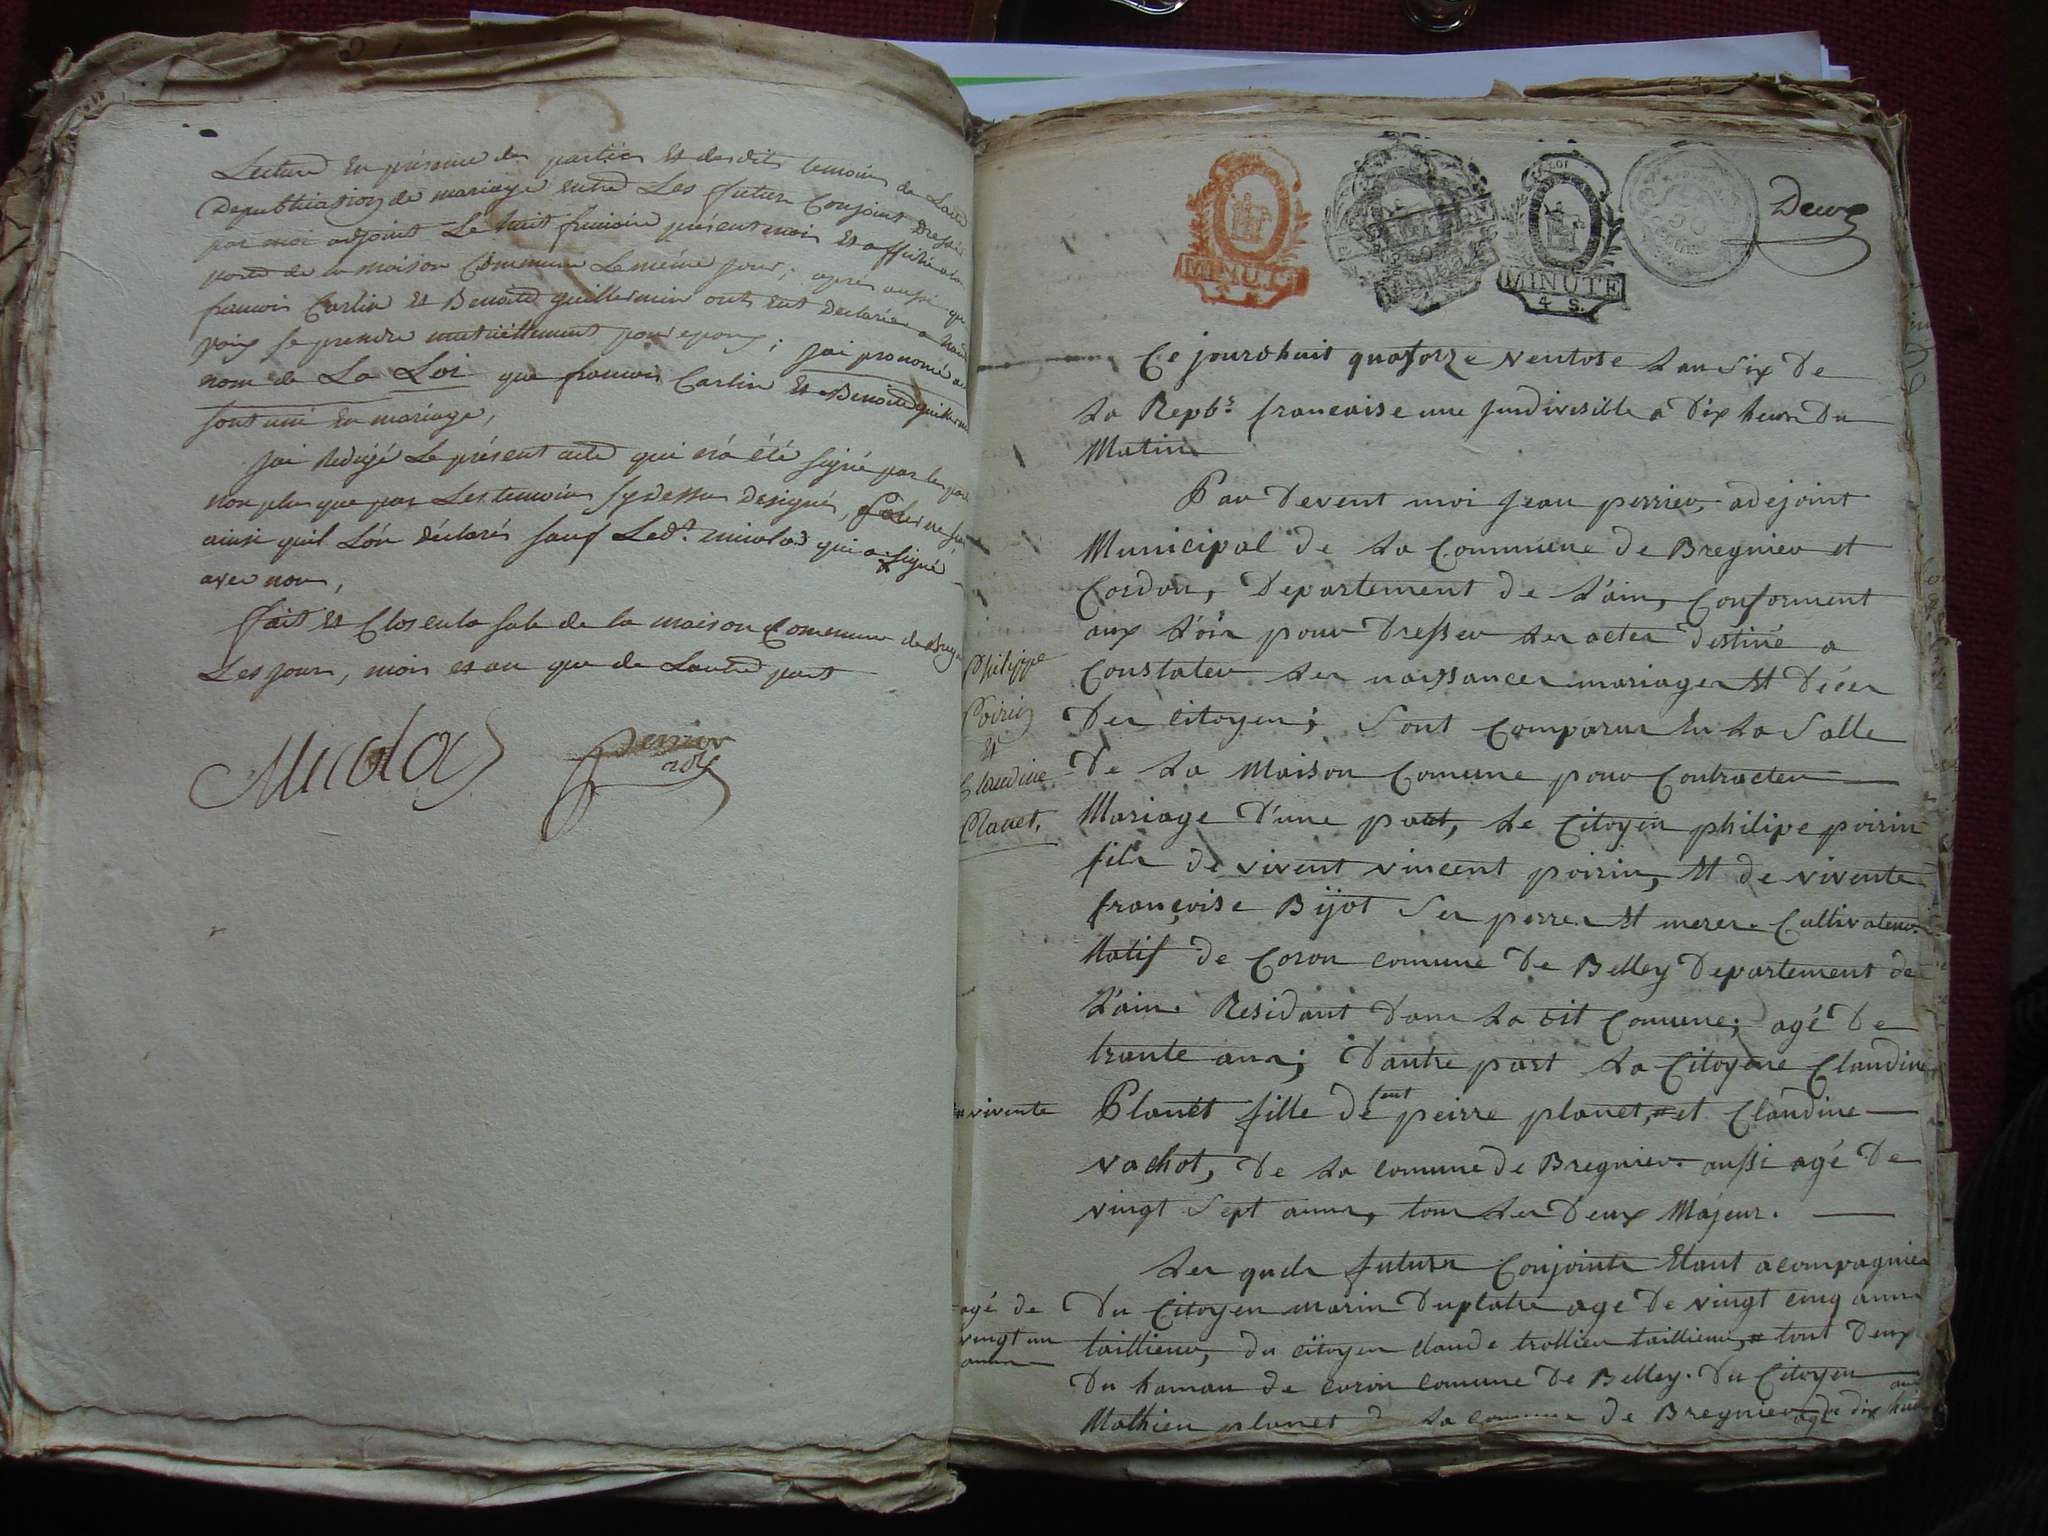 Lecture En présence des parties Et desdits temoins de Lacte
De publication de mariage entre Les futurs Conjoint Dressé
par moi adjoint Le huit frimaire présent mois Et affiché a la
porte de la maison Commune Le même jour; après aussi que
francois Carlin Et Benoite guillermin ont Eut Déclarée a haute
voix se prendre mutuellement pour epoux; jai prononcé au
nom de La Loi que francois Carlin Et Benoite guillermin
sont uni En mariage,
jai Rédigé Le présent acte qui n'a été signé par les parties
non plus que par Les temoins sy dessus designés,
ainsi quil L'on déclarés sauf Ledt. nicolas qui a signé
avec nous,
fait Et Clos en la sale de la maison Commune de
Les jour, mois et an que de Lautre part
Nicolas Perrier
adj
MINUTE
MINUTE
4 S.
Deux
Ce jourdhuit quatorze Ventose Lan Six De
La Repbs francaise une Jndivisible a Dix heure Du
Matin
Par Devent moi Jean perrier, adejoint
Municipal de La Commune de Bregnier et
Cordon, Departement de L'ain, Conforment
aux L'oix pour Dresser Les actes Destiné a
Constater Les naissances mariages Et Décés
Des Citoyen; Sont Comparus En La Salle
De La Maison Comune pour Contracter
Philippe
Poirin
Et
Claudine
Planet.
Mariage D'une part, Le Citoyen philipe poirin
fils de vivent vincent poirin, Et de vivente
françoise Bijot Ses perre Et mere. Cultivateur.
Natif de Coron comune De Belley Departement de
L'ain. Residant Dans La dit Comune; agé De
trante ans; Dautre part La Citoyene Claudine
vivente
Planét fille de feut peirre planet, # et Claudine
vachot, De La comune de Bregnier. aussi agé De
vingt Sept anns, tous Les Deux Majeur.
Les quels futurs Conjoints Etant acompagnier
Du Citoyen marin Duplatre age De vingt cinq anns
agé de
vingt un
anns
taillieur, du citoyen claude trollier taillieur, # tout Deux
Du hamau de coron comune De Belley. Du Citoyen
Mathieu planet de La commune de Bregnier agé de dix huit ans